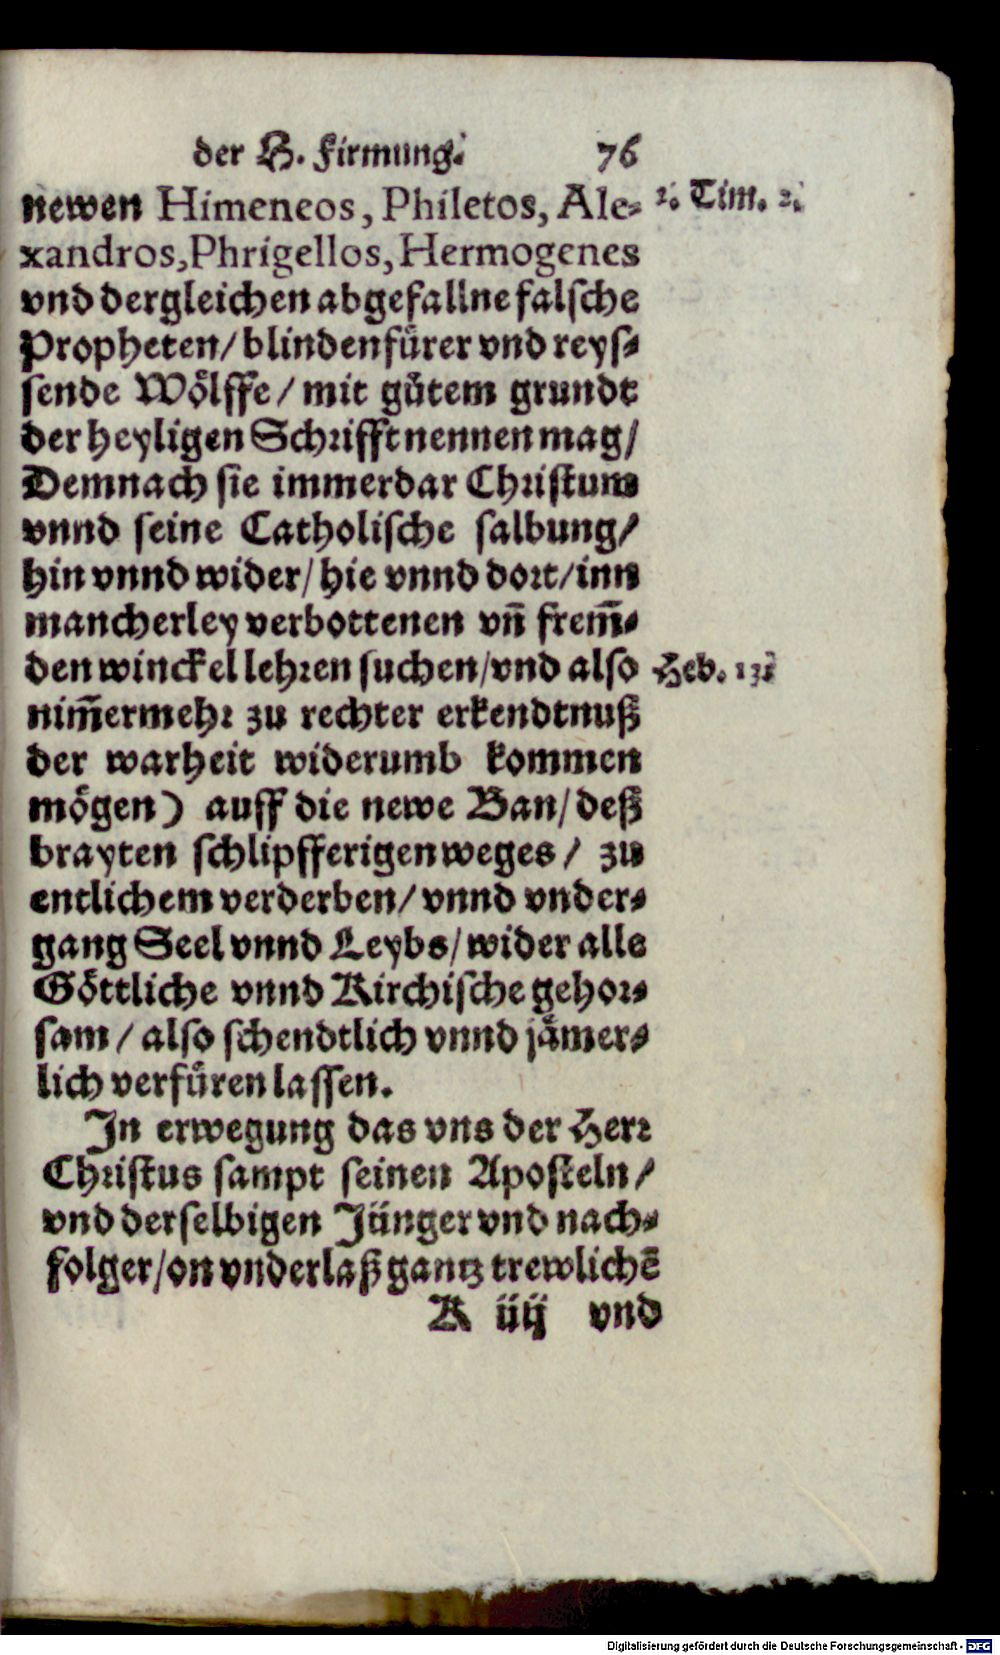 der H. Firmung. 76
newen Himeneos, Philetos, Ale- 2. Tim. 2.
xandros, Phrigellos, Hermogenes
vnd dergleichen abgefallne falsche
Propheten/ blindenfürer vnd reys-
sende Wölffe/ mit gůtem grundt
der heyligen Schrifft nennen mag/
Demnach sie immerdar Christum
vnnd seine Catholische salbung/
hin vnnd wider/ hie vnnd dort/ inn
mancherley verbottenen vn̄ frem̄-
den winckel lehren suchen/ vnd also Heb. 13.
nim̄ermehr zu rechter erkendtnuß
der warheit widerumb kommen
mögen) auff die newe Ban/ deß
brayten schlipfferigen weges/ zu
entlichem verderben/ vnnd vnder-
gang Seel vnnd Leybs/ wider alle
Göttliche vnnd Kirchische gehor-
sam/ also schendtlich vnnd jämer-
lich verfüren lassen.
In erwegung das vns der Herr
Christus sampt seinen Aposteln/
vnd derselbigen Jünger vnd nach-
folger/ on vnderlaß gantz trewlichē
K iiij vnd
Digitalisierung gefördert durch die Deutsche Forschungsgemeinschaft - DFG